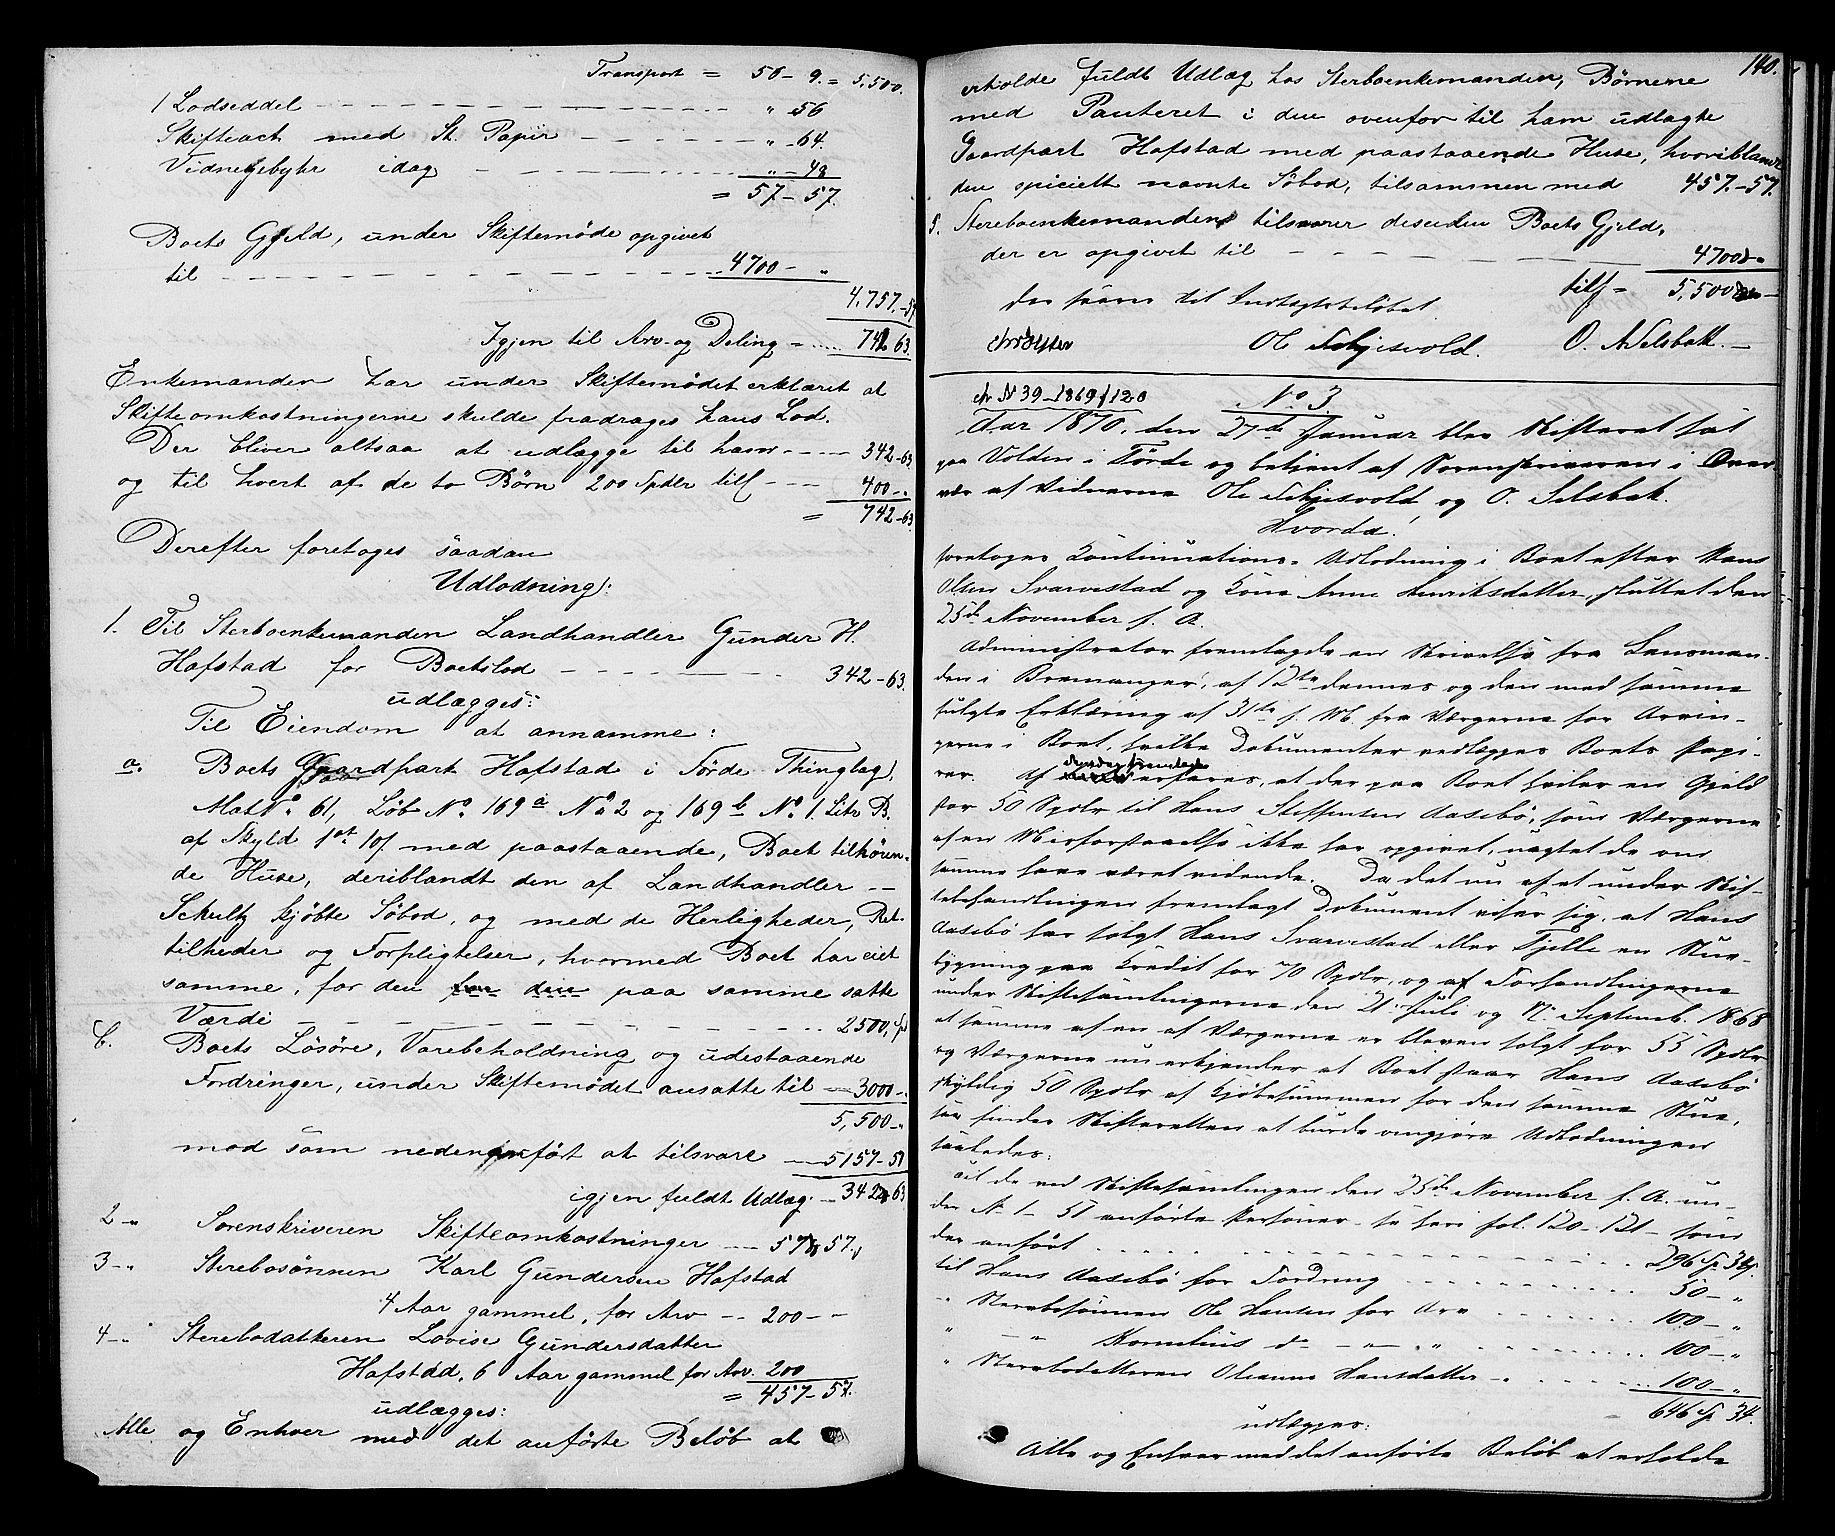 Transport = 56 - 9. = 5,500.
1 Lodseddel - - - " 56
Skifteact med St. Papir - - - " - 64.
Vidnegebyhr idag - - - " - 48
= 57 - 57.
Boets Gjeld, under Skiftemøde opgivet
til - - - 4700 - "
4,757.-57
Igjen til Arv og Deling = ..... 742. 63.
Enkemanden har under Skiftemødet erklæret at
Skifteomkostningerne skulde fradrages hans Lod.
Der bliver altsaa at udlægge til ham - - - - 342-63
og til hvert af de to Børn 200 Spdlr tils - - - 400 - "
= 742-63
Derefter foretoges saadan
Udlodning:
1. Til Sterboenkemanden Landhandler Gunder H.
Hafstad for Boetslod - - - 342-63.
udlægges:
Til Eiendom at annamme:
a. Boets Gaardpart Hafstad i Førde Thinglag,
Mat No. 61, Løb No. 169 a No 2 og 169 b No. 1. Litr B.
af Skyld 1 ort 10 s med paastaaende, Boet tilhøren-
de Huse, deriblandt den af Landhandler - -
Schultz kjøbte Søbod, og med de Herligheder, Ret-
tilheder og Forpligtelser, hvormed Boet har eiet
samme, for den for den paa samme satte
Værdi - - - 2500, Sp
b. Boets Løsøre, Varebeholdning og udestaaende
Fordringer, under Skiftemødet ansatte til - 3000 -
5,500 - "
mod som nedenanført at tilsvare - 5157-57
igjen fuldt Udlæg - 342-63
2 - " Sorenskriveren Skifteomkostninger - - 57 57.
3 - " Sterbosønnen Karl Gundersen Hafstad
4 Aar gammel, for Arv - - 200 - -
4 - " Sterbodatteren Lovise Gundersdatter
Hafstad, 6 Aar gammel for Arv. 200
= 457-57.
udlægges:
Alle og Enhver med det anførte Beløb at
140.
erholde fuldt Udlæg hos Sterboenkemanden, Børnene
med Panteret i den ovenfor til ham udlagte
Gaardpart Hafstad med paastaaende Huse, hvoriblandt
den specielt nævnte Søbod, tilsammen med 457.-57.
5. Sterboenkemanden tilsvarer desuden Boets Gjeld,
der er opgivet til - - - 4700 -
tils = 5,500 -
der svarer til Indtægtsbeløbet.
Ole Selgesvold. O. Selsbak. -
No 39 - 1869 / 120 No 3.
Aar 1870, den 27de Januar blev Skifteret sat
paa Volden i Førde og betjent af Sorenskriveren i Over-
vær af Vidnerne Ole Selgesvold og O. Selsbak.
Hvorda!
foretoges Continuations-Udlodning i Boet efter Hans
Olsen Svarvestad og Kone Anne Henriksdatter, sluttet den
25de November f. A.
Administrator fremlagde en Skrivelse fra Lensman-
den i Bremanger, af 12te dennes og den med samme
fulgte Erklæring af 31te f. M. fra Værgerne for Arvin-
gerne i Boet, hvilke Dokumenter vedlægges Boets Papi-
rer. Af erfares, at der paa Boet hviler en Gjeld
stor 50 Spdlr til Hans Steffensen Aasebø, som Værgerne
af en Misforstaaelse ikke har opgivet, uagtet de om
samme have været vidende. Da det nu af et under Skif-
tebehandlingen fremlagt Dokument viser sig, at Hans
Aasebø har solgt Hans Svarvestad eller Fjelle en Stue-
bygning paa Kredit for 70 Spdlr, og af Forhandlingerne
under Skiftesamlingerne den 21. Juli og 17. Septemb. 1868
at samme af en af Værgerne er bleven solgt for 55 Spdlr
og Værgerne nu erkjender at Boet staar Hans Aasebø
skyldig 50 Spdlr af Kjøbesummen for den samme Stue,
saa finder Skifteretten at burde omgjøre Udlodningen
saaledes:
Til de ved Skiftesamlingen den 25de November f. A. un-
der No 1 - 51 anførte Personer - se her fol. 120 - 121 - som
der anført - - - 296 Sp. 34 s.
til Hans Aasebø for Fordring - - - 50 - "
" Sterbosønnen Ole Hansen for Arv - - - 100 - "
" - " - Kornelius d° - " - " - - - 100 - "
" Sterbodatteren Olianne Hansdatter - - - 100 - "
646 Sp 34.
udlægges:
Alle og Enhver med det anførte Beløb at erholde